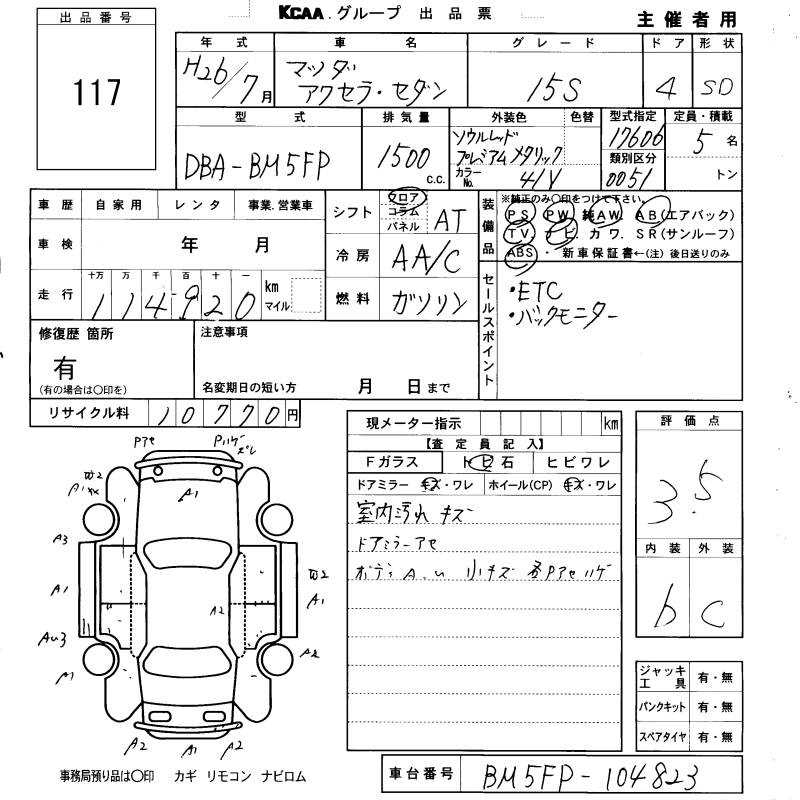 KCAA.グループ 出品票
主催者用
出品番号
117
年式 車名 グレード ドア 形状
H26/7月 マツダ アクセラ・セダン 15S 4 SD
型式 排気量 外装色 色替 型式指定 定員・積載
DBA-BM5FP 1500 c.c. ソウルレッド プレミアムメタリック 17606 5名
カラーNo. 41V 類別区分 0051 トン
車歴 自家用 レンタ 事業.営業車
車検 年 月
走行 十万 万 千 百 十 一
114920 km マイル
シフト フロア コラム パネル AT
冷房 AA/C
燃料 ガソリン
装備品 ※純正のみ○印をつけて下さい。
PS PW 純AW AB(エアバック)
TV ナビ. カワ. SR(サンルーフ)
ABS ・ 新車保証書←(注) 後日送りのみ
セールスポイント
・ETC
・バックモニター
修復歴 箇所
有
(有の場合は○印を)
注意事項
名変期日の短い方 月 日まで
リサイクル料 10770円
現メーター指示 km
【査定員記入】
Fガラス トビ石 ヒビワレ
ドアミラー キズ・ワレ ホイール(CP) キズ・ワレ
室内汚れ キズ
ドアミラーアセ
ボディ A.U 小キズ 各Pアセハゲ
評価点
3.5
内装 外装
b C
ジャッキ工具 有・無
パンクキット 有・無
スペアタイヤ 有・無
Pアセ Pハゲ ズレ
A1
A3
A1
AU3
A1
A2
A1
A2
A2 A1 A2
事務局預り品は○印 カギ リモコン ナビロム
車台番号 BM5FP-104823